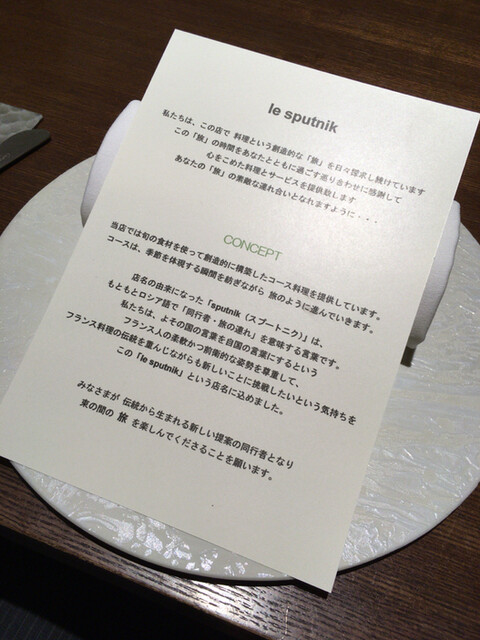 le sputnik
私たちは、この店で 料理という創造的な「旅」を日々探求し続けています
この「旅」の時間をあなたとともに過ごす巡り合わせに感謝して
心をこめた料理とサービスを提供致します
あなたの「旅」の素敵な連れ合いとなれますように・・・
CONCEPT
当店では旬の食材を使って創造的に構築したコース料理を提供しています。
コースは、季節を体現する瞬間を紡ぎながら 旅のように進んでいきます。
店名の由来になった「sputnik（スプートニク）」は、
もともとロシア語で「同行者・旅の連れ」を意味する言葉です。
私たちは、よその国の言葉を自国の言葉にするという
フランス人の柔軟かつ前衛的な姿勢を尊重して、
フランス料理の伝統を重んじながらも新しいことに挑戦したいという気持ちを
この「le sputnik」という店名に込めました。
みなさまが 伝統から生まれる新しい提案の同行者となり
束の間の 旅 を楽しんでくださることを願います。